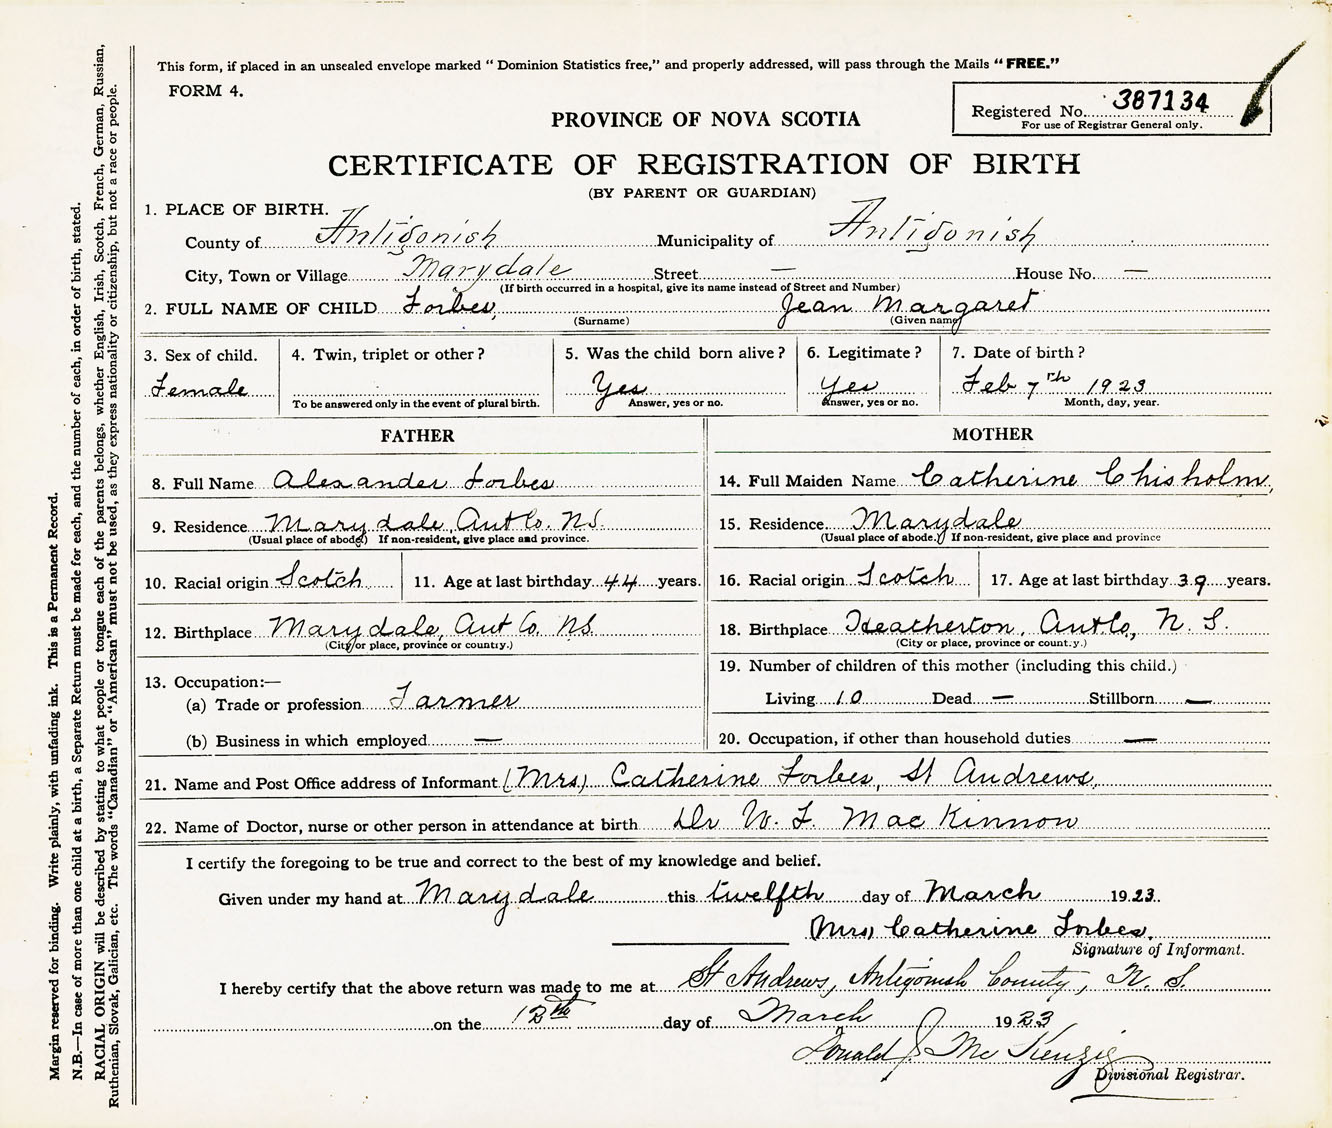 This form, if placed in an unsealed envelope marked " Dominion Statistics free," and properly addressed, will pass through the Mails " FREE."
FORM 4.
Registered No. 387134
For use of Registrar General only.
PROVINCE OF NOVA SCOTIA
CERTIFICATE OF REGISTRATION OF BIRTH
(BY PARENT OR GUARDIAN)
1. PLACE OF BIRTH.
County of Antigonish Municipality of Antigonish
City, Town or Village Marydale Street — House No. —
(If birth occurred in a hospital, give its name instead of Street and Number)
2. FULL NAME OF CHILD Forbes, Jean Margaret
(Surname) (Given name)
3. Sex of child. 4. Twin, triplet or other? 5. Was the child born alive? 6. Legitimate? 7. Date of birth?
Female Yes Yes Feb 7th 1923
To be answered only in the event of plural birth. Answer, yes or no. Answer, yes or no. Month, day, year.
FATHER
8. Full Name Alexander Forbes
9. Residence Marydale, Ant Co. N.S.
(Usual place of abode) If non-resident, give place and province.
10. Racial origin Scotch 11. Age at last birthday 44 years.
12. Birthplace Marydale, Ant Co. N.S.
(City or place, province or country.)
13. Occupation:—
(a) Trade or profession Farmer
(b) Business in which employed —
MOTHER
14. Full Maiden Name Catherine Chisholm,
15. Residence. Marydale
(Usual place of abode.) If non-resident, give place and province
16. Racial origin Scotch 17. Age at last birthday 39 years.
18. Birthplace Heatherton, Ant Co, N. S.
(City or place, province or country.)
19. Number of children of this mother (including this child.)
Living 10 Dead — Stillborn —
20. Occupation, if other than household duties —
21. Name and Post Office address of Informant (Mrs) Catherine Forbes, St Andrews,
22. Name of Doctor, nurse or other person in attendance at birth Dr W. F. MacKinnon
I certify the foregoing to be true and correct to the best of my knowledge and belief.
Given under my hand at Marydale this twelfth day of March 1923.
Mrs, Catherine Forbes.
Signature of Informant.
I hereby certify that the above return was made to me at St Andrews, Antigonish County, N. S.
on the 12th day of March 1923
Donald J McKenzie
Divisional Registrar.
Margin reserved for binding. Write plainly, with unfading ink. This is a Permanent Record.
N.B.—In case of more than one child at a birth, a Separate Return must be made for each, and the number of each, in order of birth, stated.
RACIAL ORIGIN will be described by stating to what people or tongue each of the parents belongs, whether English, Irish, Scotch, French, German, Russian,
Ruthenian, Slovak, Galician, etc. The words "Canadian" or "American" must not be used, as they express nationality or citizenship, but not a race or people.